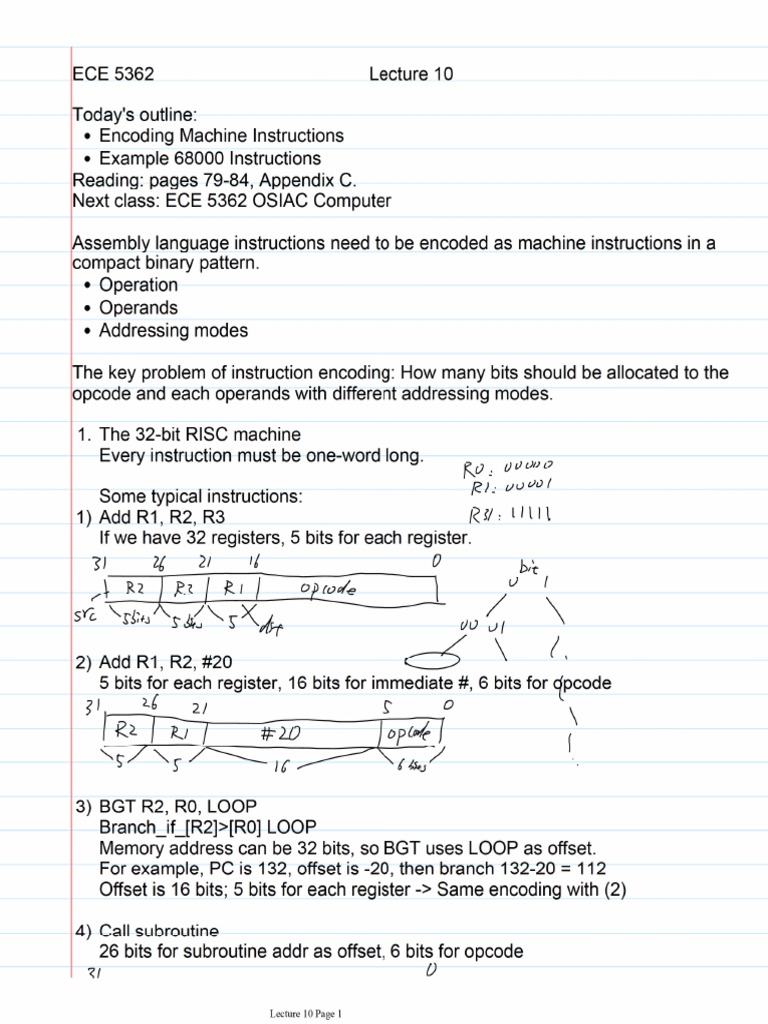 ECE 5362 Lecture 10
Today's outline:
• Encoding Machine Instructions
• Example 68000 Instructions
Reading: pages 79-84, Appendix C.
Next class: ECE 5362 OSIAC Computer
Assembly language instructions need to be encoded as machine instructions in a
compact binary pattern.
• Operation
• Operands
• Addressing modes
The key problem of instruction encoding: How many bits should be allocated to the
opcode and each operands with different addressing modes.
1. The 32-bit RISC machine
Every instruction must be one-word long.
R0: 00000
R1: 00001
Some typical instructions:
1) Add R1, R2, R3
R31: 11111
If we have 32 registers, 5 bits for each register.
31 26 21 16 0
bit
0 1
R2 R3 R1 opcode
src 5bits 5 bits 5 dst
00 01
2) Add R1, R2, #20
5 bits for each register, 16 bits for immediate #, 6 bits for opcode
31 26 21 5 0
R2 R1 #20 opcode
5 5 16 6 bits
3) BGT R2, R0, LOOP
Branch_if_[R2]>[R0] LOOP
Memory address can be 32 bits, so BGT uses LOOP as offset.
For example, PC is 132, offset is -20, then branch 132-20 = 112
Offset is 16 bits; 5 bits for each register -> Same encoding with (2)
4) Call subroutine
26 bits for subroutine addr as offset, 6 bits for opcode
31 0
Lecture 10 Page 1